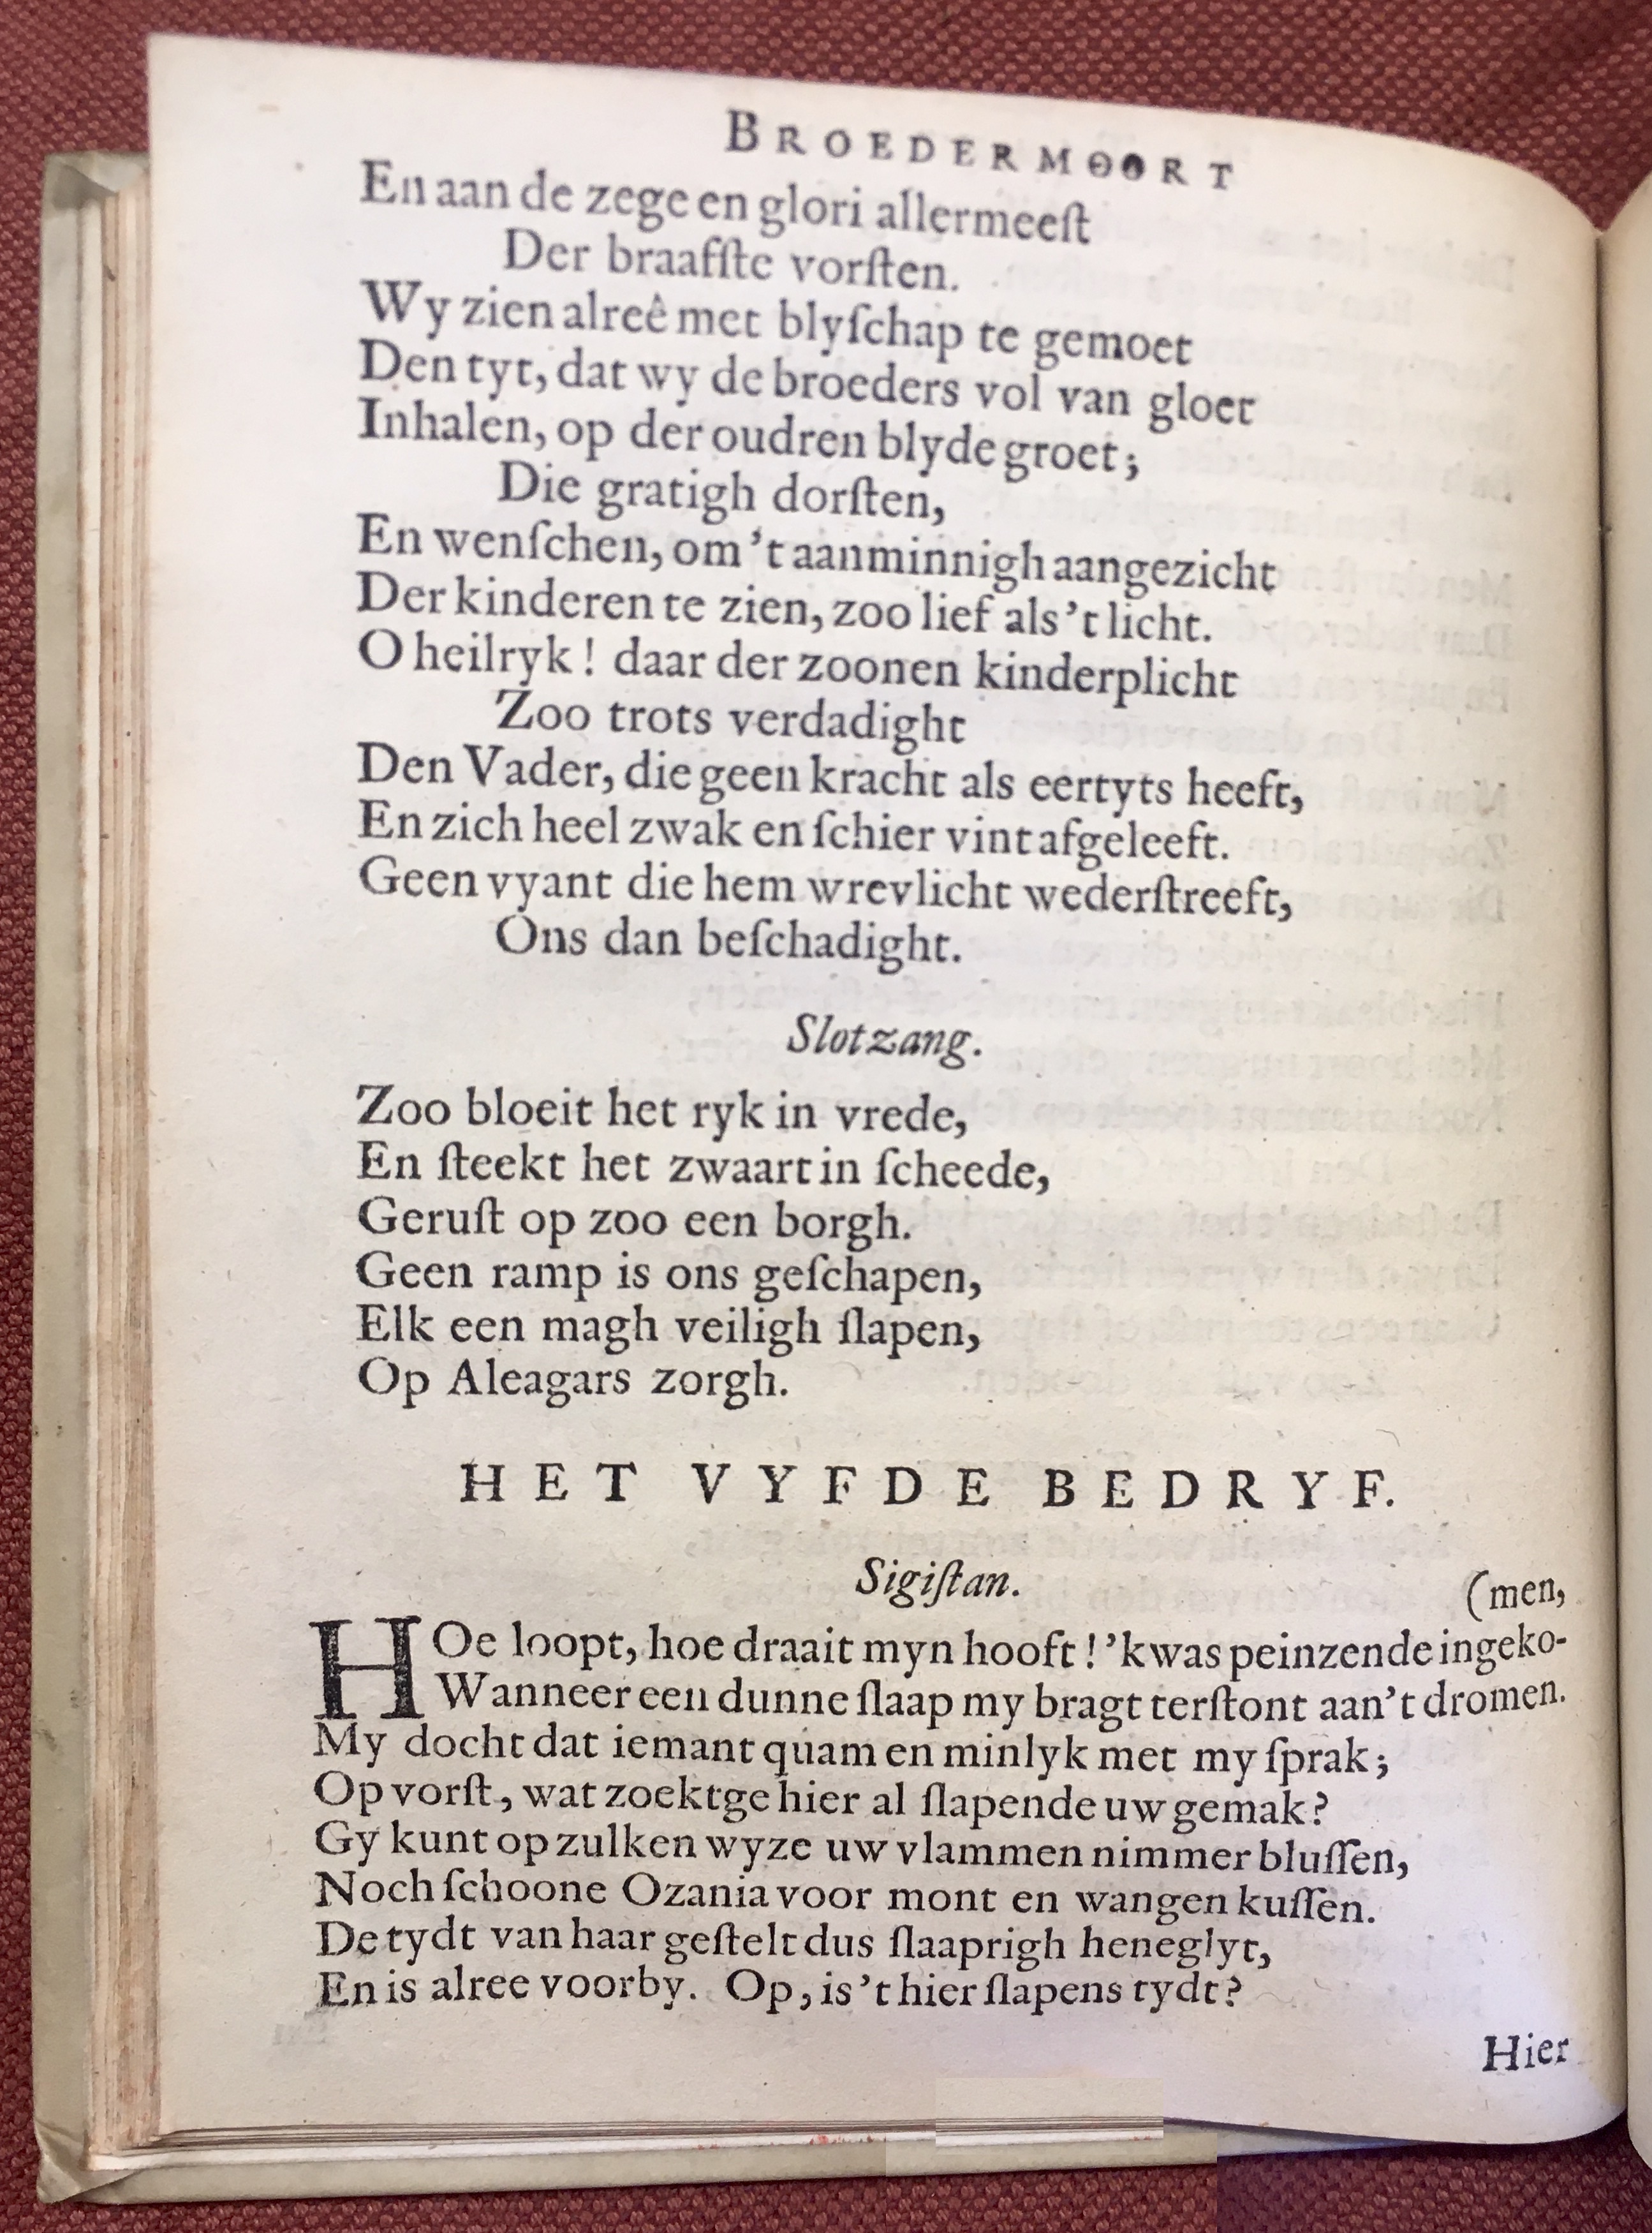 BROEDERMOORT
En aan de zege en glori allermeeſt
Der braafſte vorſten.
Wy zien alreê met blyſchap te gemoet
Den tyt, dat wy de broeders vol van gloet
Inhalen, op der oudren blyde groet;
Die gratigh dorſten,
En wenſchen, om 't aanminnigh aangezicht
Der kinderen te zien, zoo lief als 't licht.
O heilryk! daar der zoonen kinderplicht
Zoo trots verdadight
Den Vader, die geen kracht als eertyts heeft,
En zich heel zwak en ſchier vint afgeleeft.
Geen vyant die hem wrevlicht wederſtreeft,
Ons dan beſchadight.
Slotzang.
Zoo bloeit het ryk in vrede,
En ſteekt het zwaart in ſcheede,
Geruſt op zoo een borgh.
Geen ramp is ons geſchapen,
Elk een magh veiligh ſlapen,
Op Aleagars zorgh.
HET VYFDE BEDRYF.
Sigiſtan.
(men,
HOe loopt, hoe draait myn hooft! 'k was peinzende ingeko-
Wanneer een dunne ſlaap my bragt terſtont aan't dromen.
My docht dat iemant quam en minlyk met my ſprak;
Op vorſt, wat zoektge hier al ſlapende uw gemak?
Gy kunt op zulken wyze uw vlammen nimmer bluſſen,
Noch ſchoone Ozania voor mont en wangen kuſſen.
De tydt van haar geſtelt dus ſlaaprigh heneglyt,
En is alree voorby. Op, is 't hier ſlapens tydt?
Hier